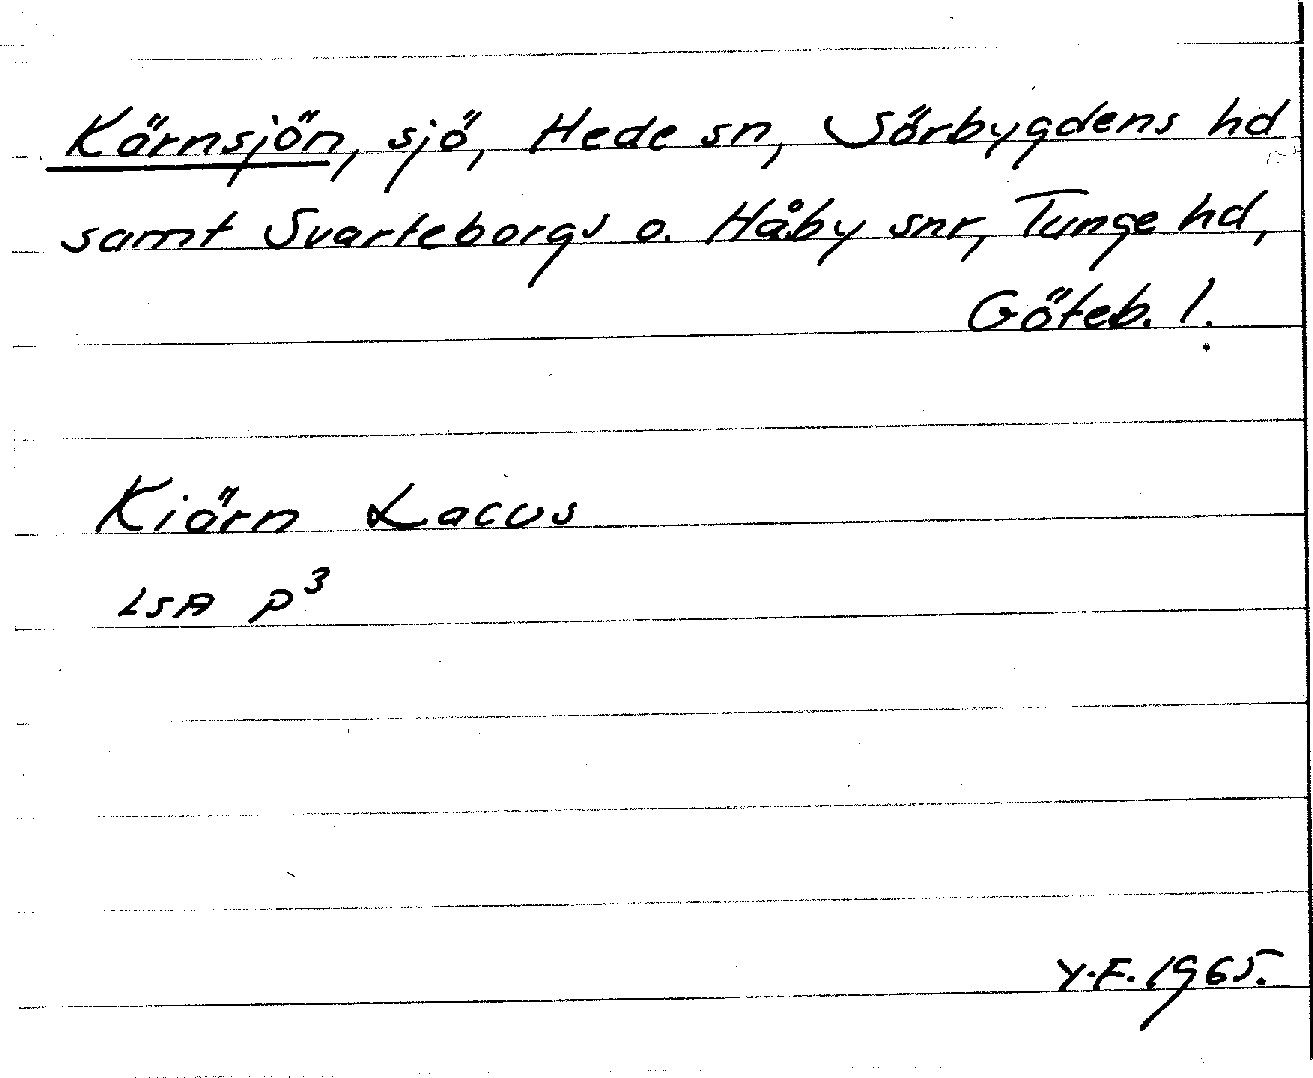 Körnsjön, sjö, Hede sn, Sörbygdens hd
samt Svarteborgs o. Håby snr, Tunge hd,
Göteb. l.
Kiörn Lacus
LSA P³
Y.F. 1965.